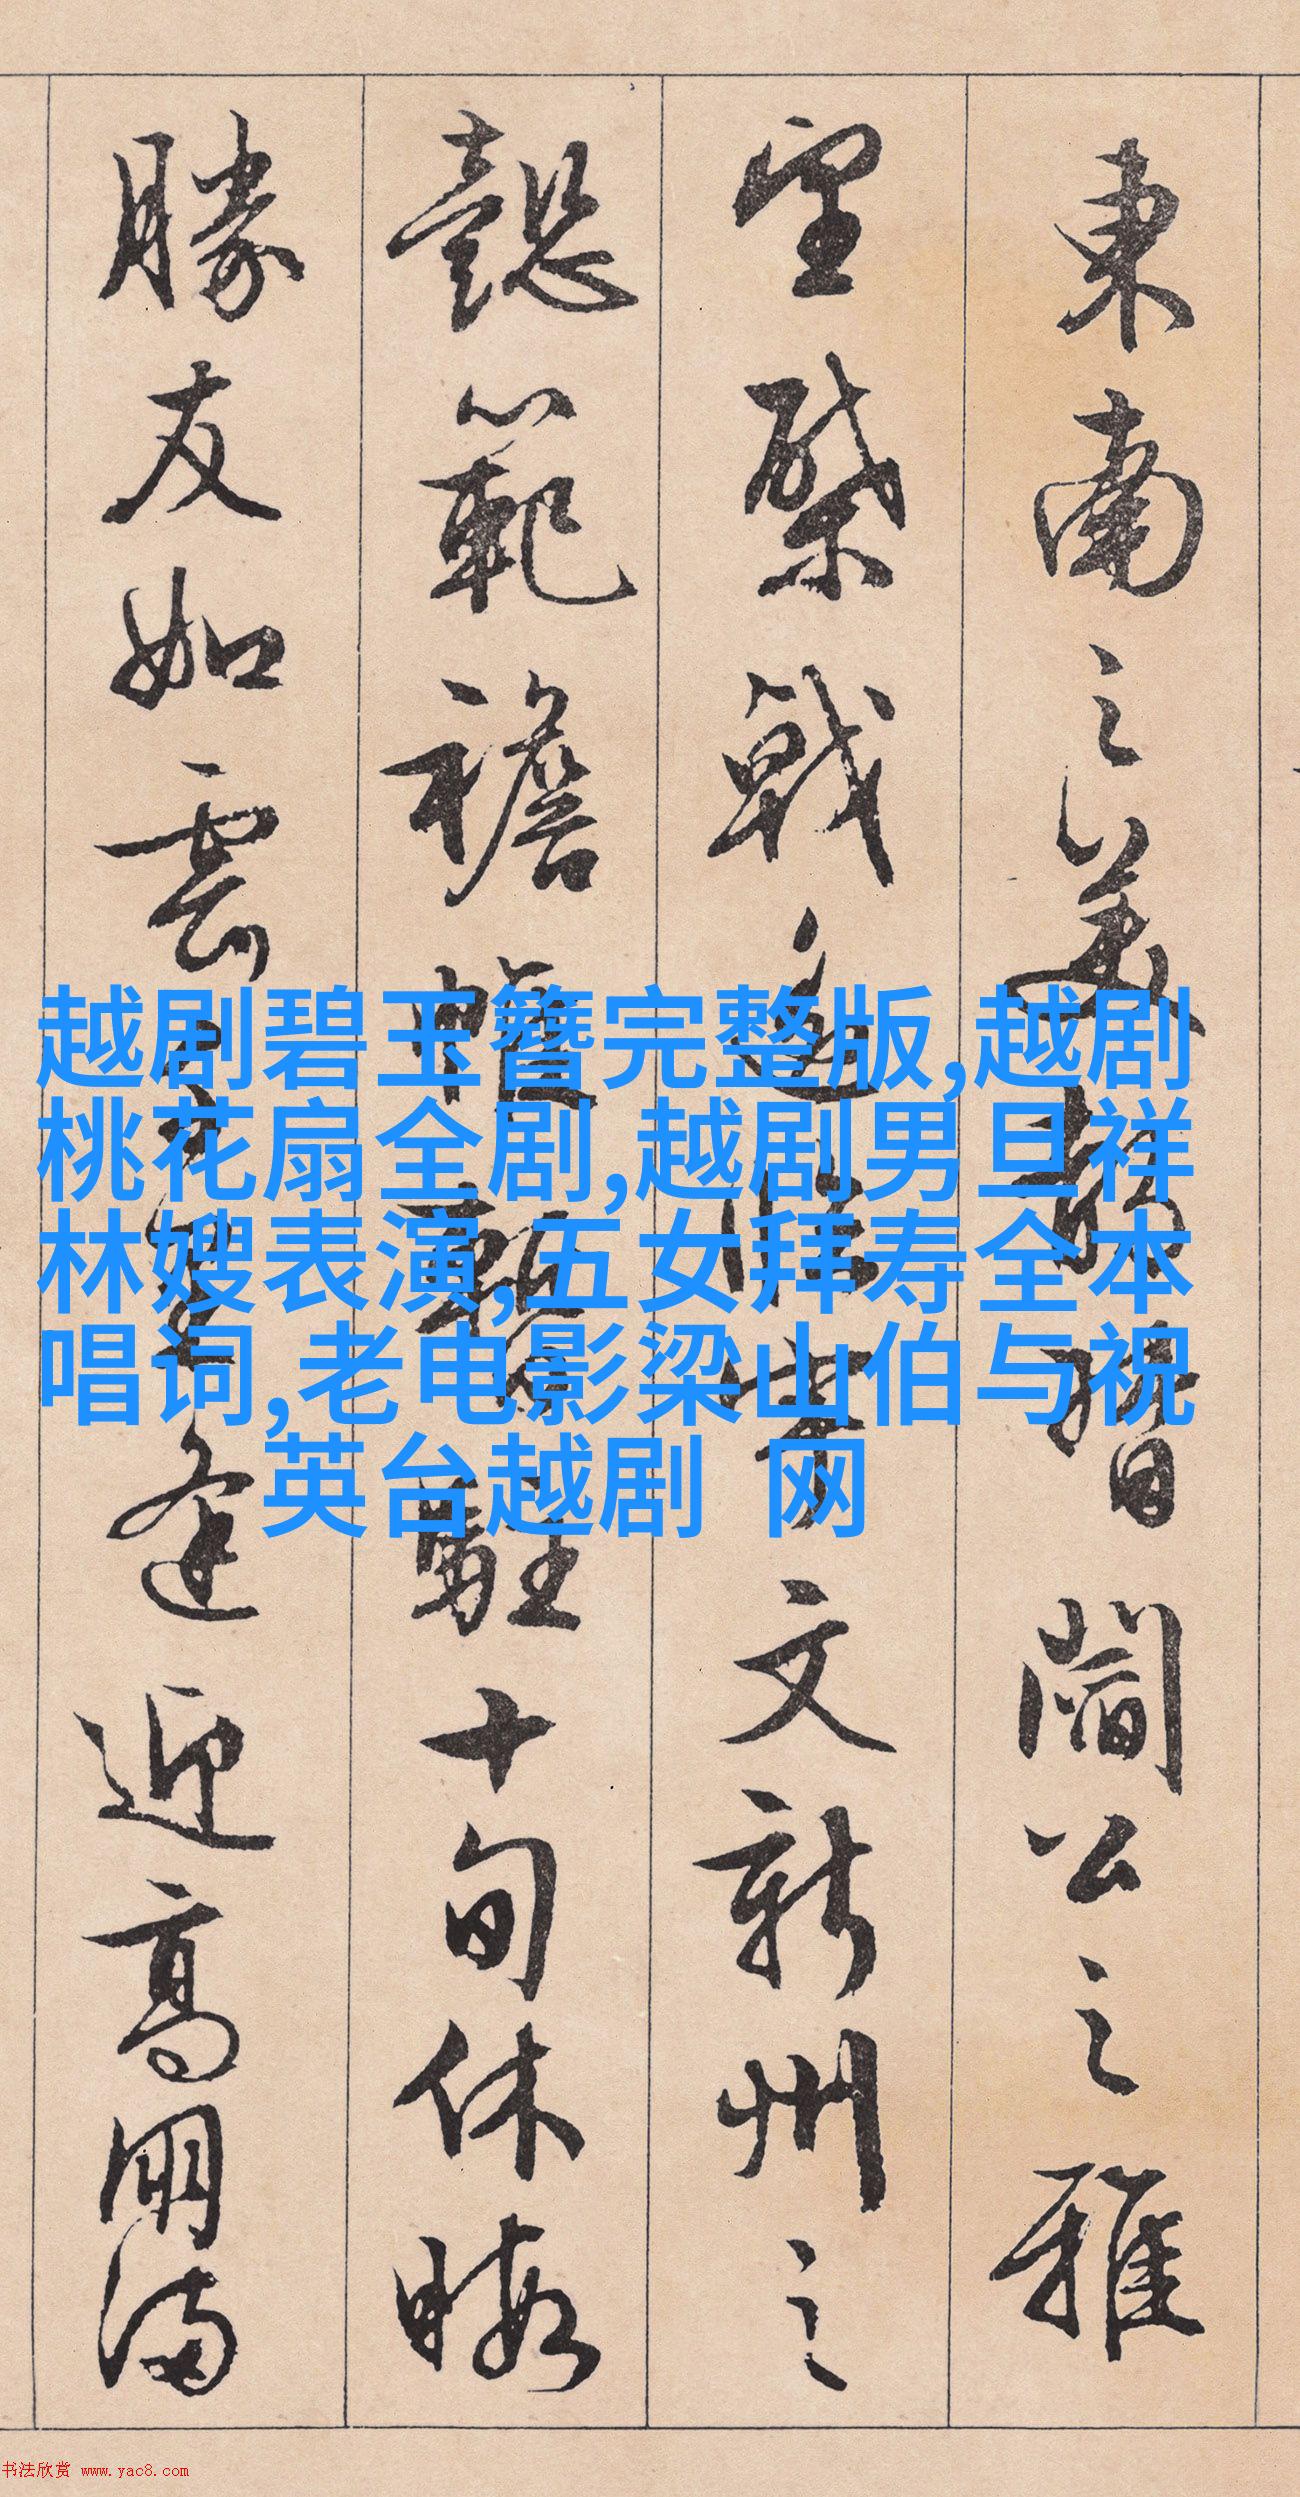 東南之美都督閻公之雅
望棨戟遙臨宇文新州之
懿範襜帷暫駐十旬休暇
勝友如雲千里逢迎高朋滿
越剧碧玉簪完整版,越剧
桃花扇全剧,越剧男旦祥
林嫂表演,五女拜寿全本
唱词,老电影梁山伯与祝
英台越剧 网
书法欣赏 www.yac8.com